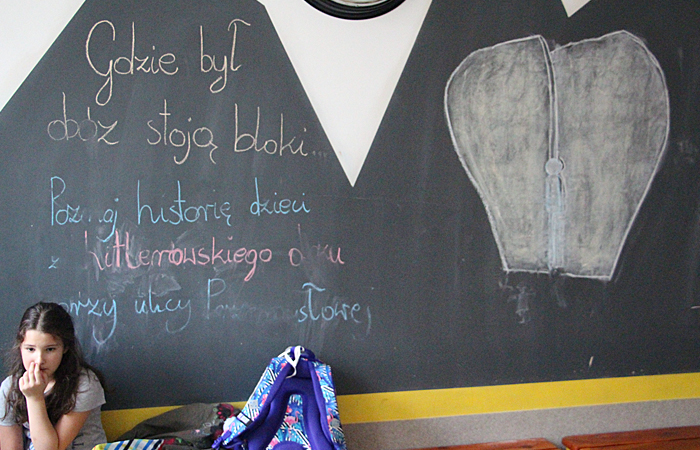 Gdzie był
obóz stoją bloki...
Poz...aj historię dzieci
z hitlerowskiego
przy ulicy